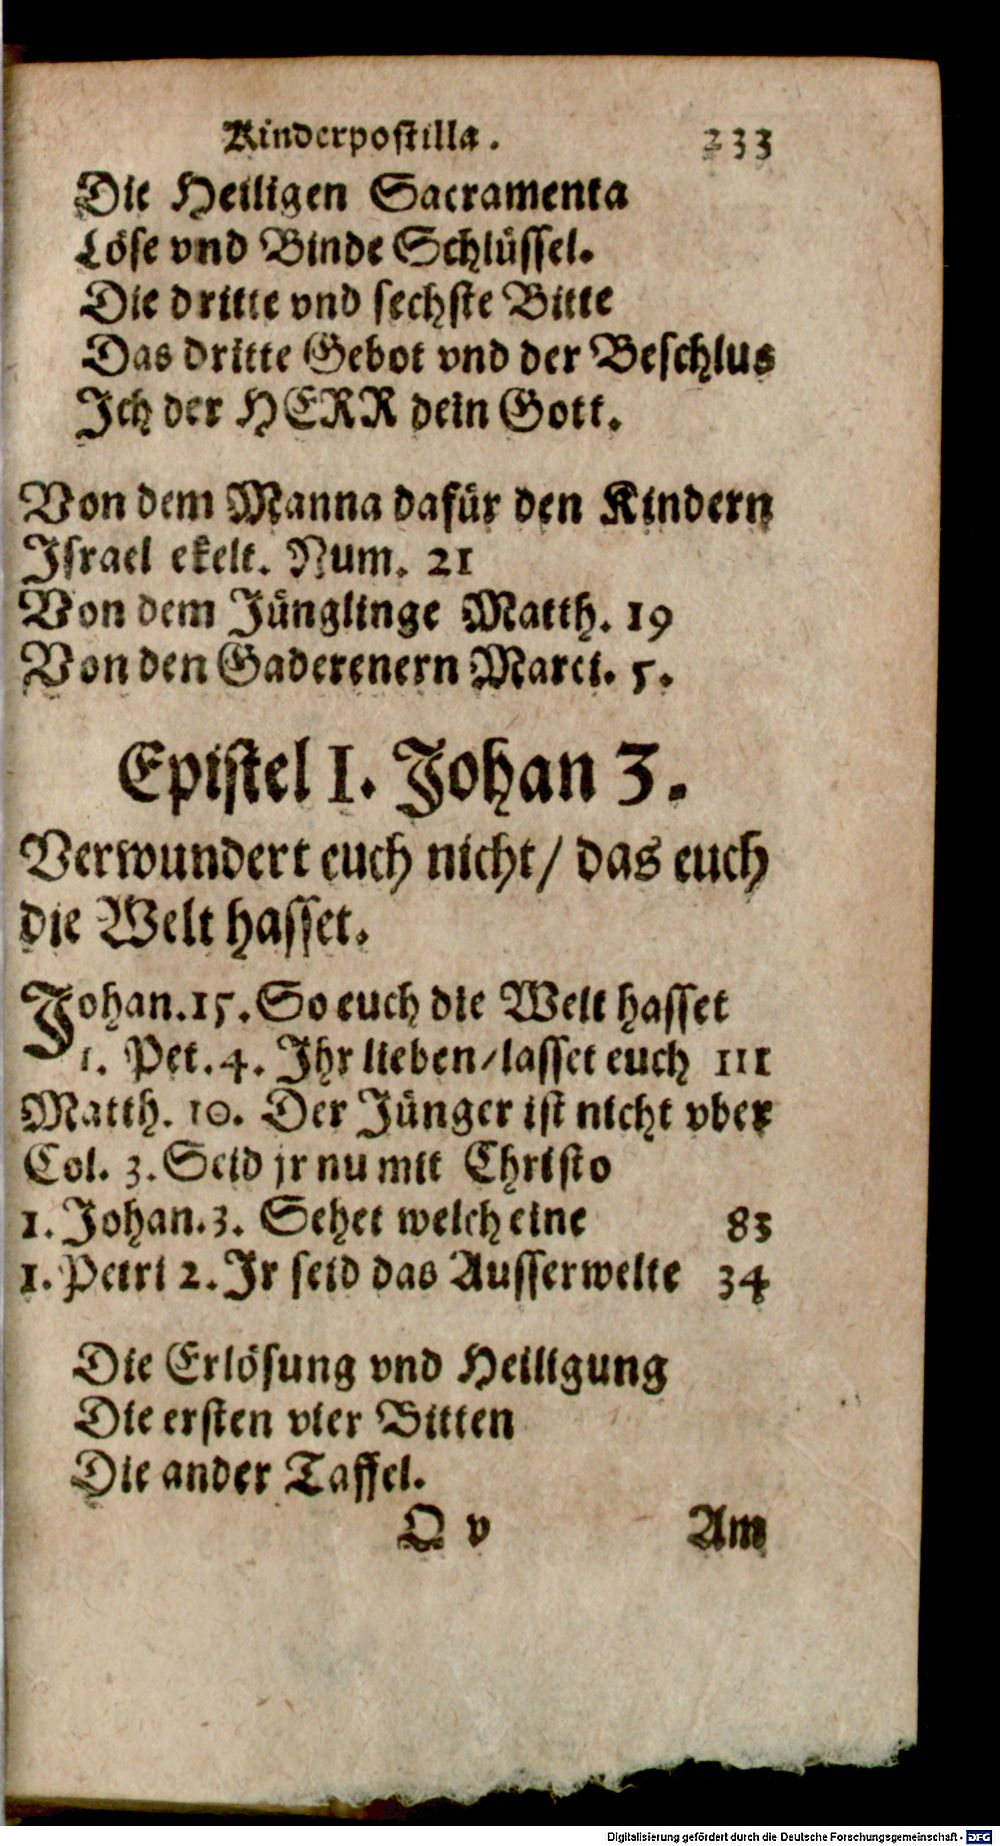 Kinderpostilla. 233
Die Heiligen Sacramenta
Löse vnd Binde Schlüssel.
Die dritte vnd sechste Bitte
Das dritte Gebot vnd der Beschlus
Ich der HERR dein Gott.
Von dem Manna dafür den Kindern
Israel ekelt. Num. 21
Von dem Jünglinge Matth. 19
Von den Gaderenern Marci. 5.
Epistel I. Johan 3.
Verwundert euch nicht/ das euch
die Welt hasset.
Johan. 15. So euch die Welt hasset
1. Pet. 4. Ihr lieben/lasset euch 111
Matth. 10. Der Jünger ist nicht vber
Col. 3. Seid jr nu mit Christo
1. Johan. 3. Sehet welch eine 83
1. Petri 2. Ir seid das Ausserwelte 34
Die Erlösung vnd Heiligung
Die ersten vier Bitten
Die ander Taffel.
Q v Am
Digitalisierung gefördert durch die Deutsche Forschungsgemeinschaft - DFG